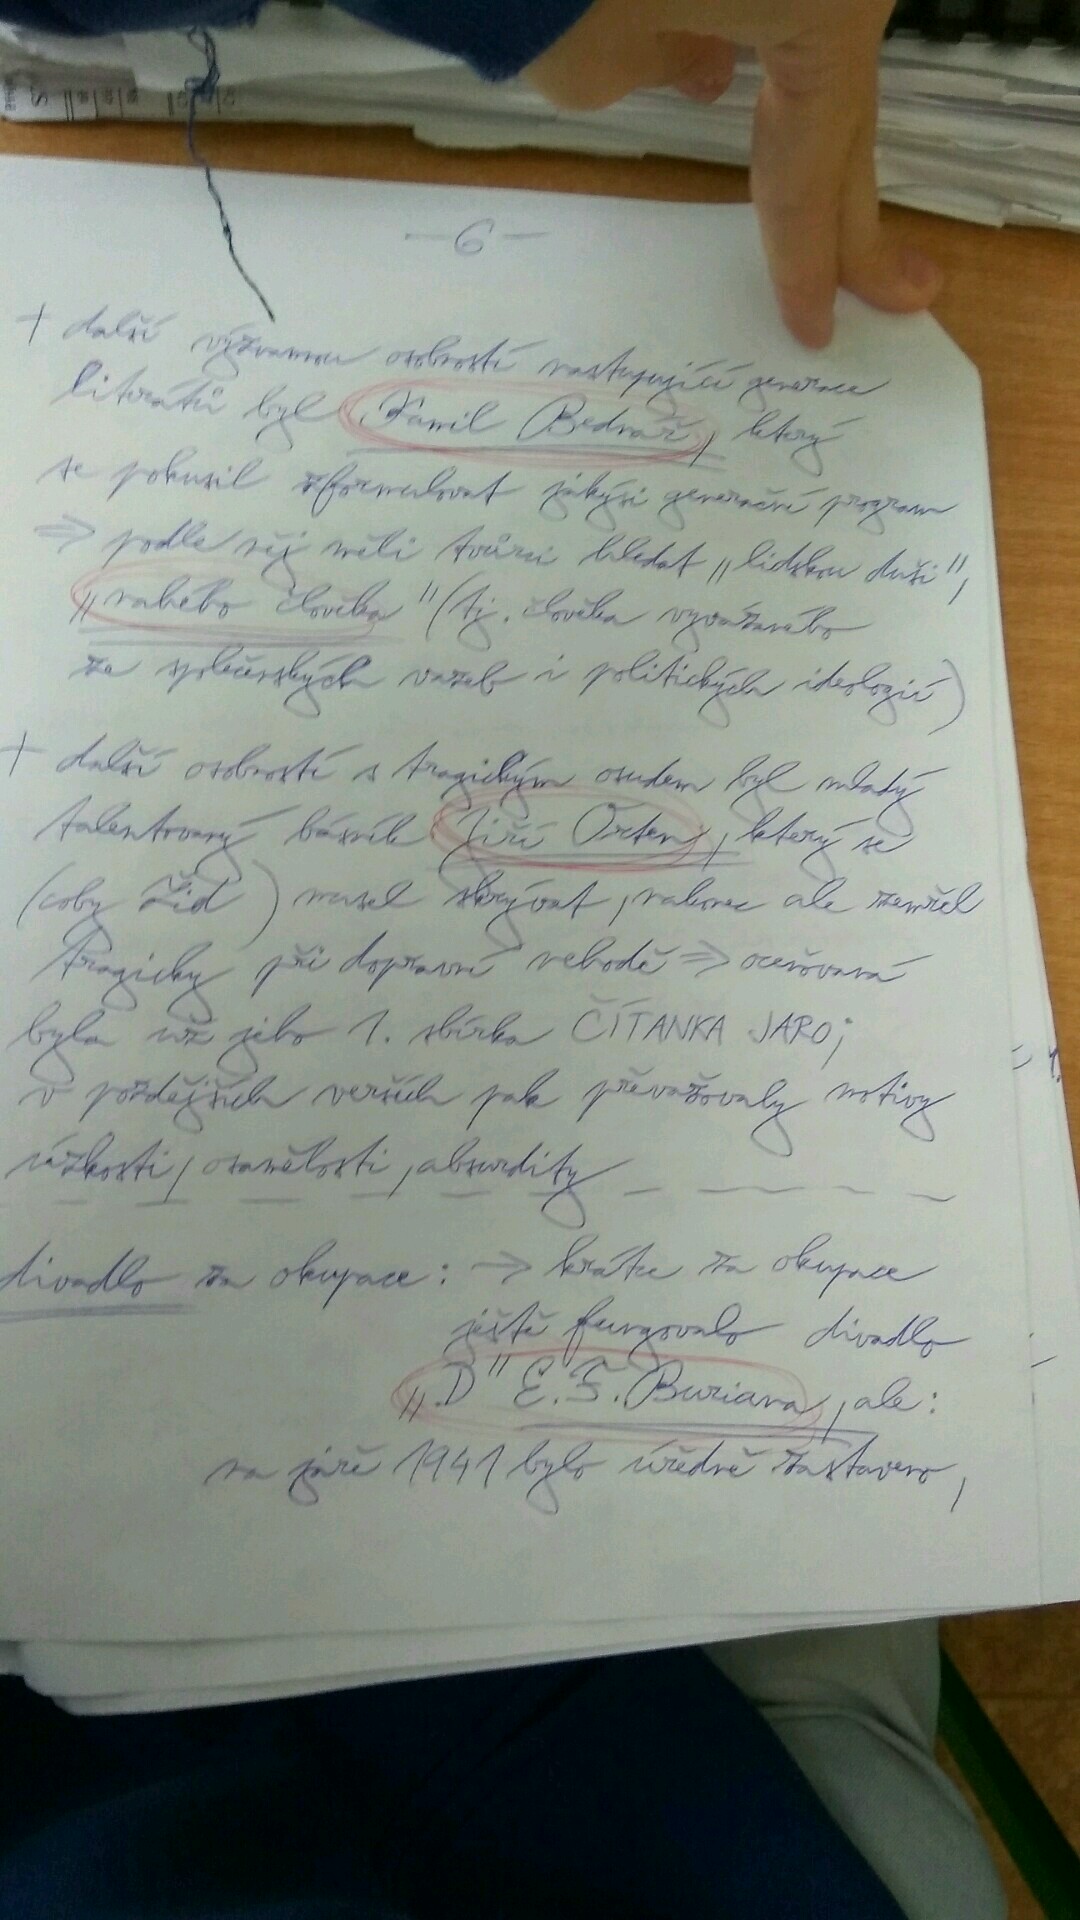 — 6 —
+ další významnou osobností nastupující generace
literátů byl Kamil Bednář, který
se pokusil zformulovat jakýsi generační program
⇒ podle něj měli tvůrci hledat „lidskou duši",
„nahého člověka" (tj. člověka vyvázaného
ze společenských vazeb i politických ideologií)
+ další osobností s tragickým osudem byl mladý
talentovaný básník Jiří Orten, který se
(coby Žid) musel skrývat, nakonec ale zemřel
tragicky při dopravní nehodě ⇒ oceňovaná
byla už jeho 1. sbírka ČÍTANKA JARO;
v pozdějších verších pak převažovaly motivy
úzkosti, osamělosti, absurdity
divadlo za okupace: → krátce za okupace
ještě fungovalo divadlo
„D" E. F. Buriana, ale:
na jaře 1941 bylo úředně zastaveno,